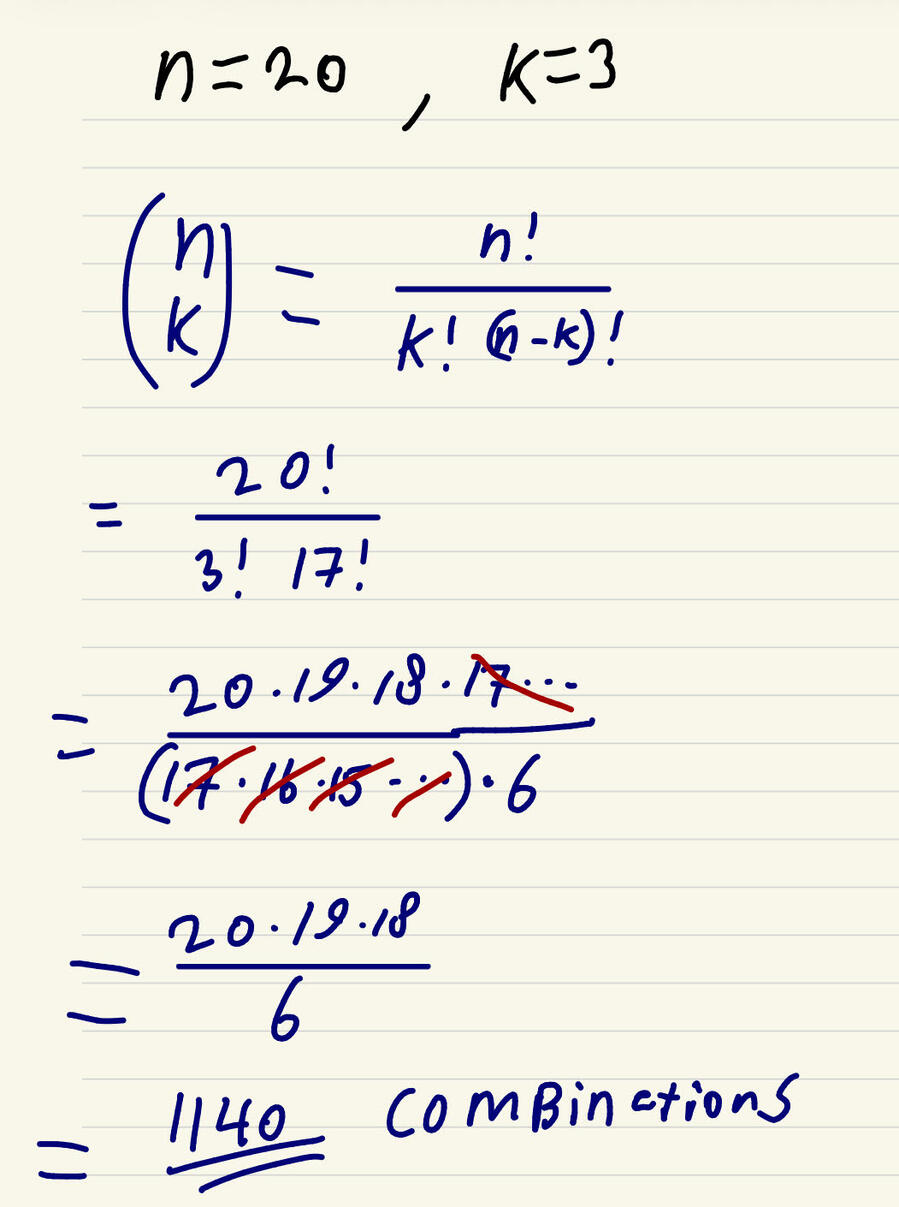 n=20 , k=3
(n k) = n! / k! (n-k)!
= 20! / 3! 17!
= 20·19·18·17··· / (17·16·15····)·6
= 20·19·18 / 6
= 1140 combinations